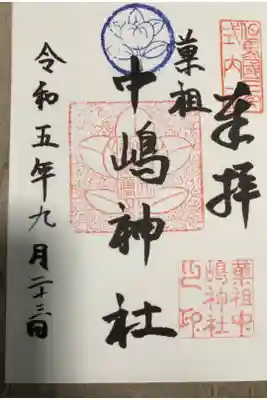 奉拝
菓祖
中嶋神社
令和五年九月二十三日
但馬國三宮
式内
菓祖中
嶋神社
之印